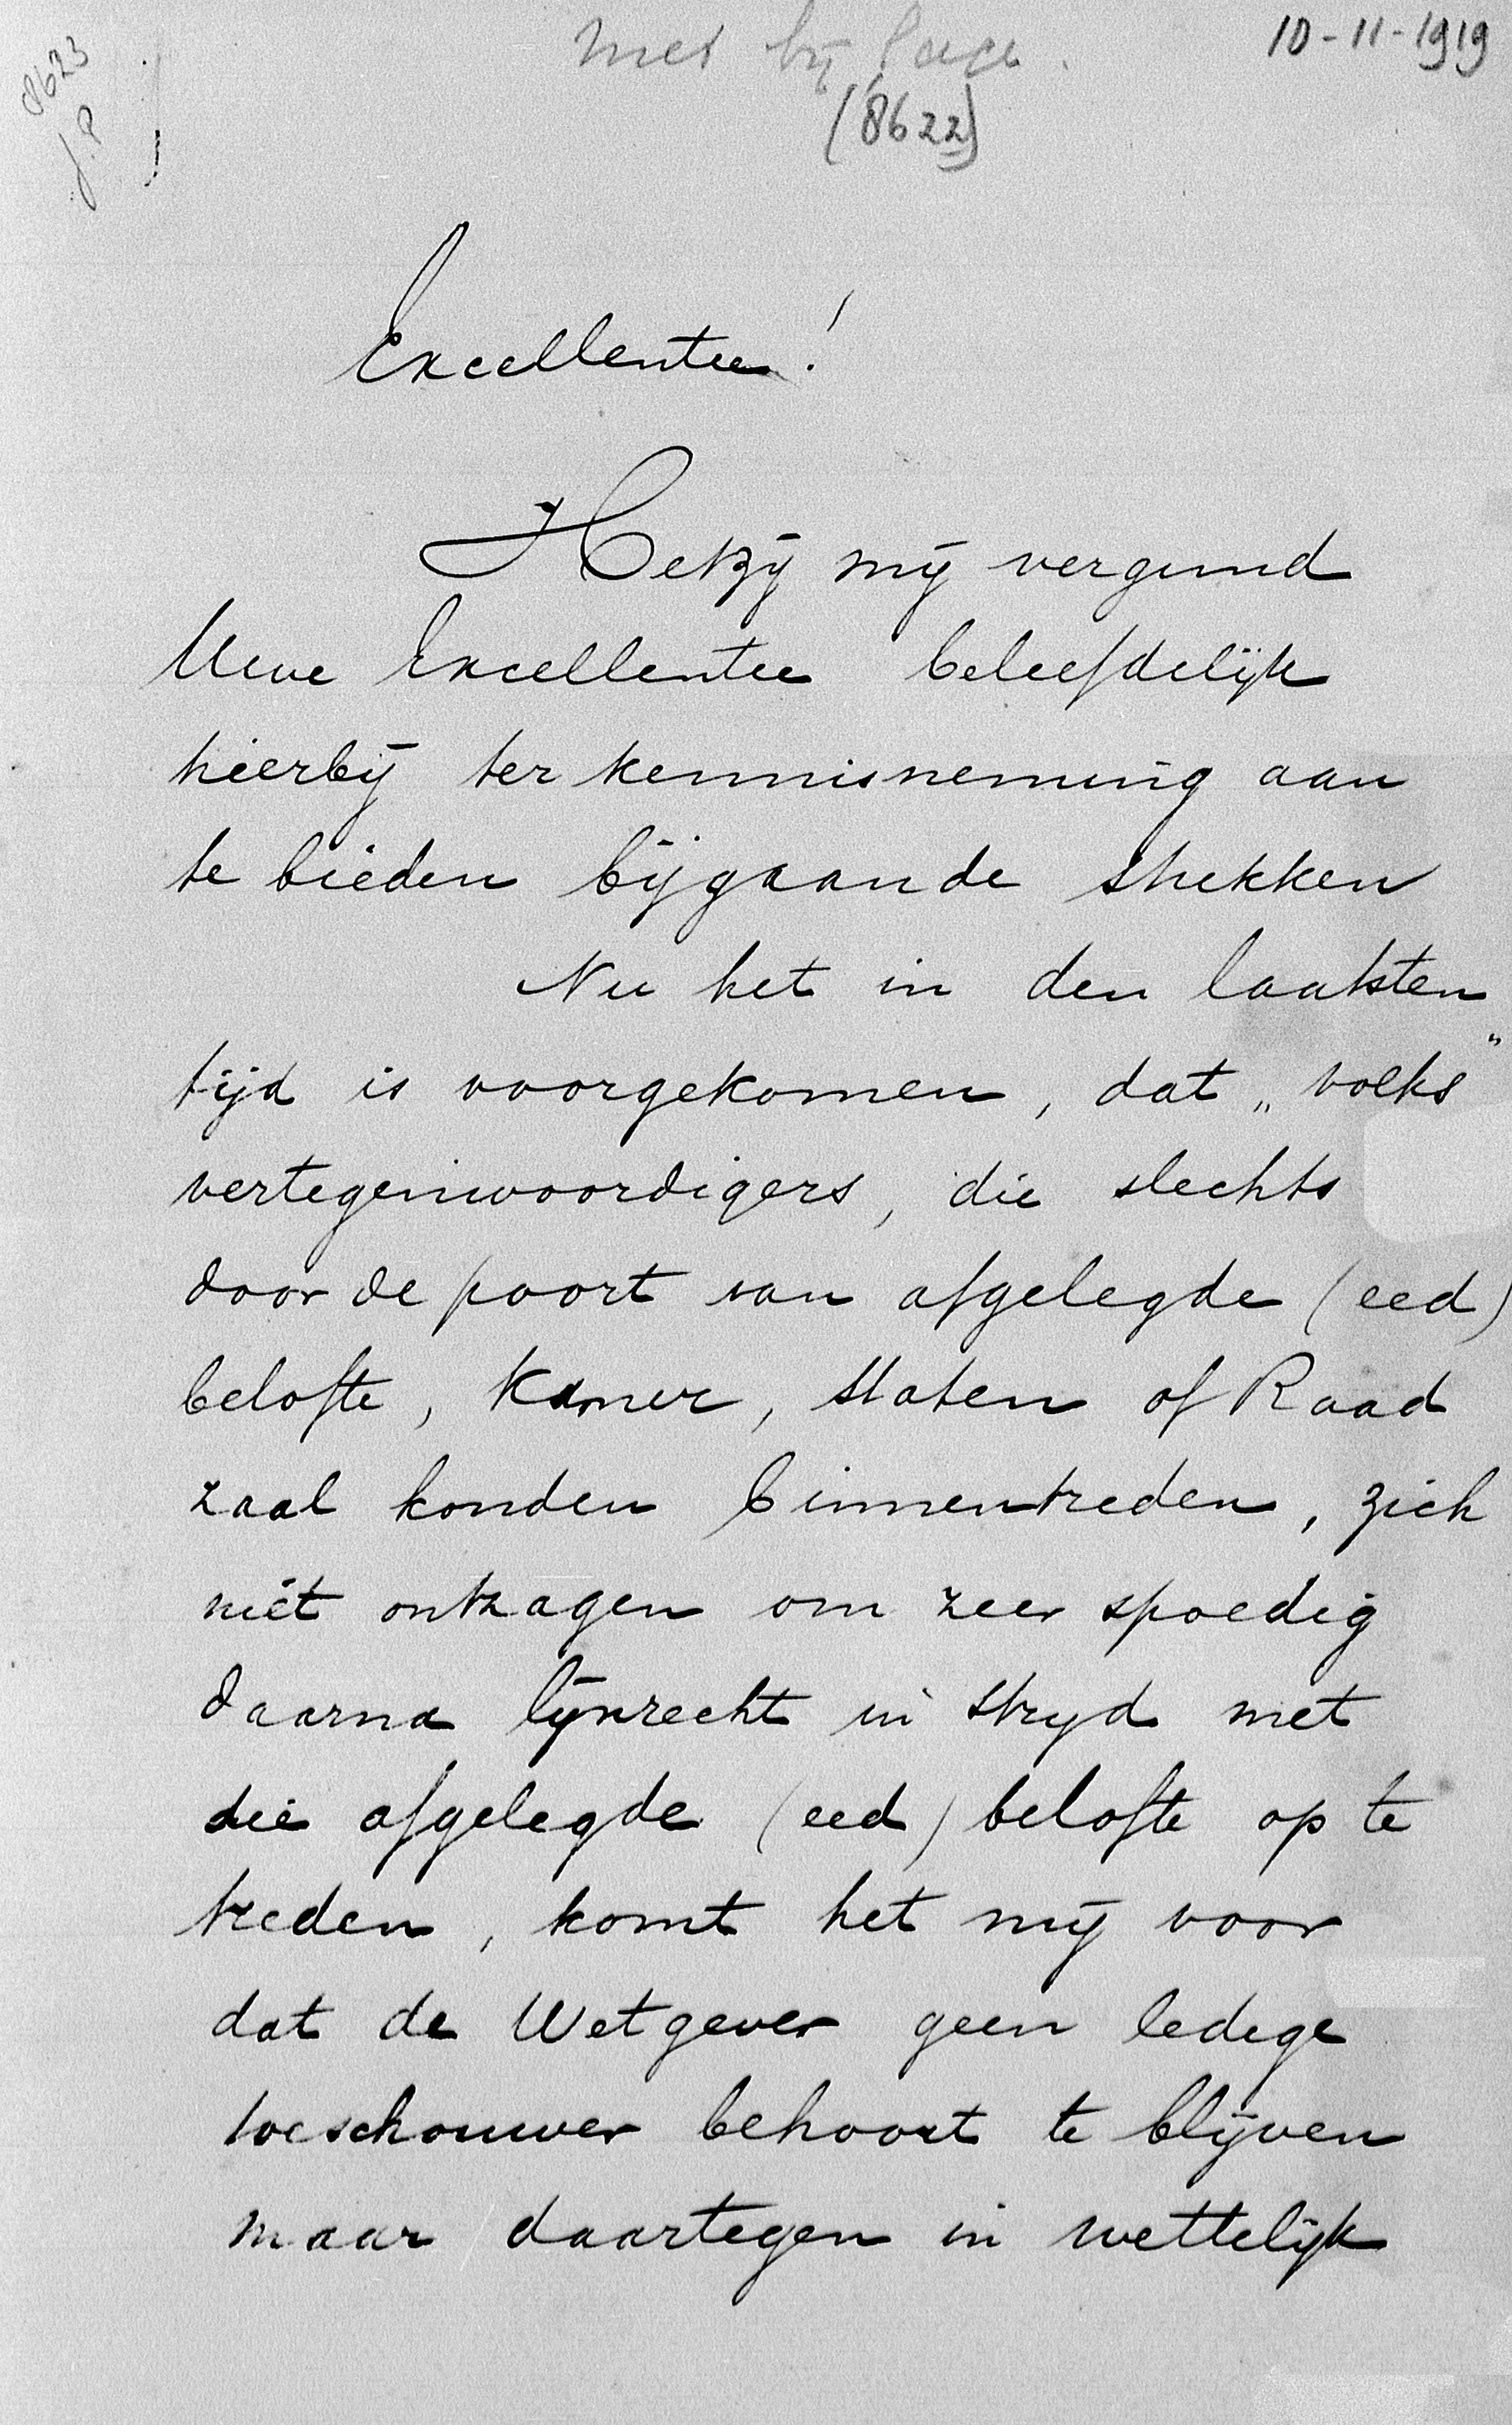 met bijlage.
10-11-1919
(8622)
8623
Excellentie!
Het zij mij vergund
Uwe Excellentie beleefdelijk
hierbij ter kennisneming aan
te bieden bijgaande stukken
Nu het in den laatsten
tijd is voorgekomen, dat „volks"
vertegenwoordigers, die slechts
door de poort van afgelegde (eed)
belofte, Kamer, Staten of Raad
zaal konden binnentreden, zich
niét ontzagen om zeer spoedig
daarna lijnrecht in strijd met
die afgelegde (eed) belofte op te
treden, komt het mij voor
dat de Wetgever geen ledige
toeschouwer behoort te blijven
maar daartegen in wettelijk